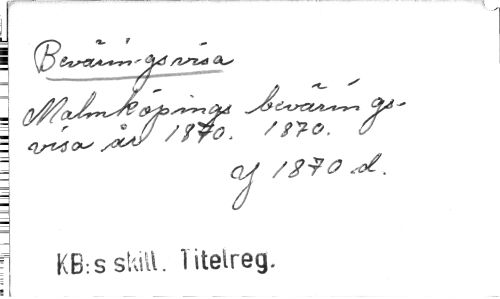 Beväringsvisa
Malmköpings bevärings-
visa år 1870. 1870.
Y 1870 d.
KB:s skill. Titelreg.